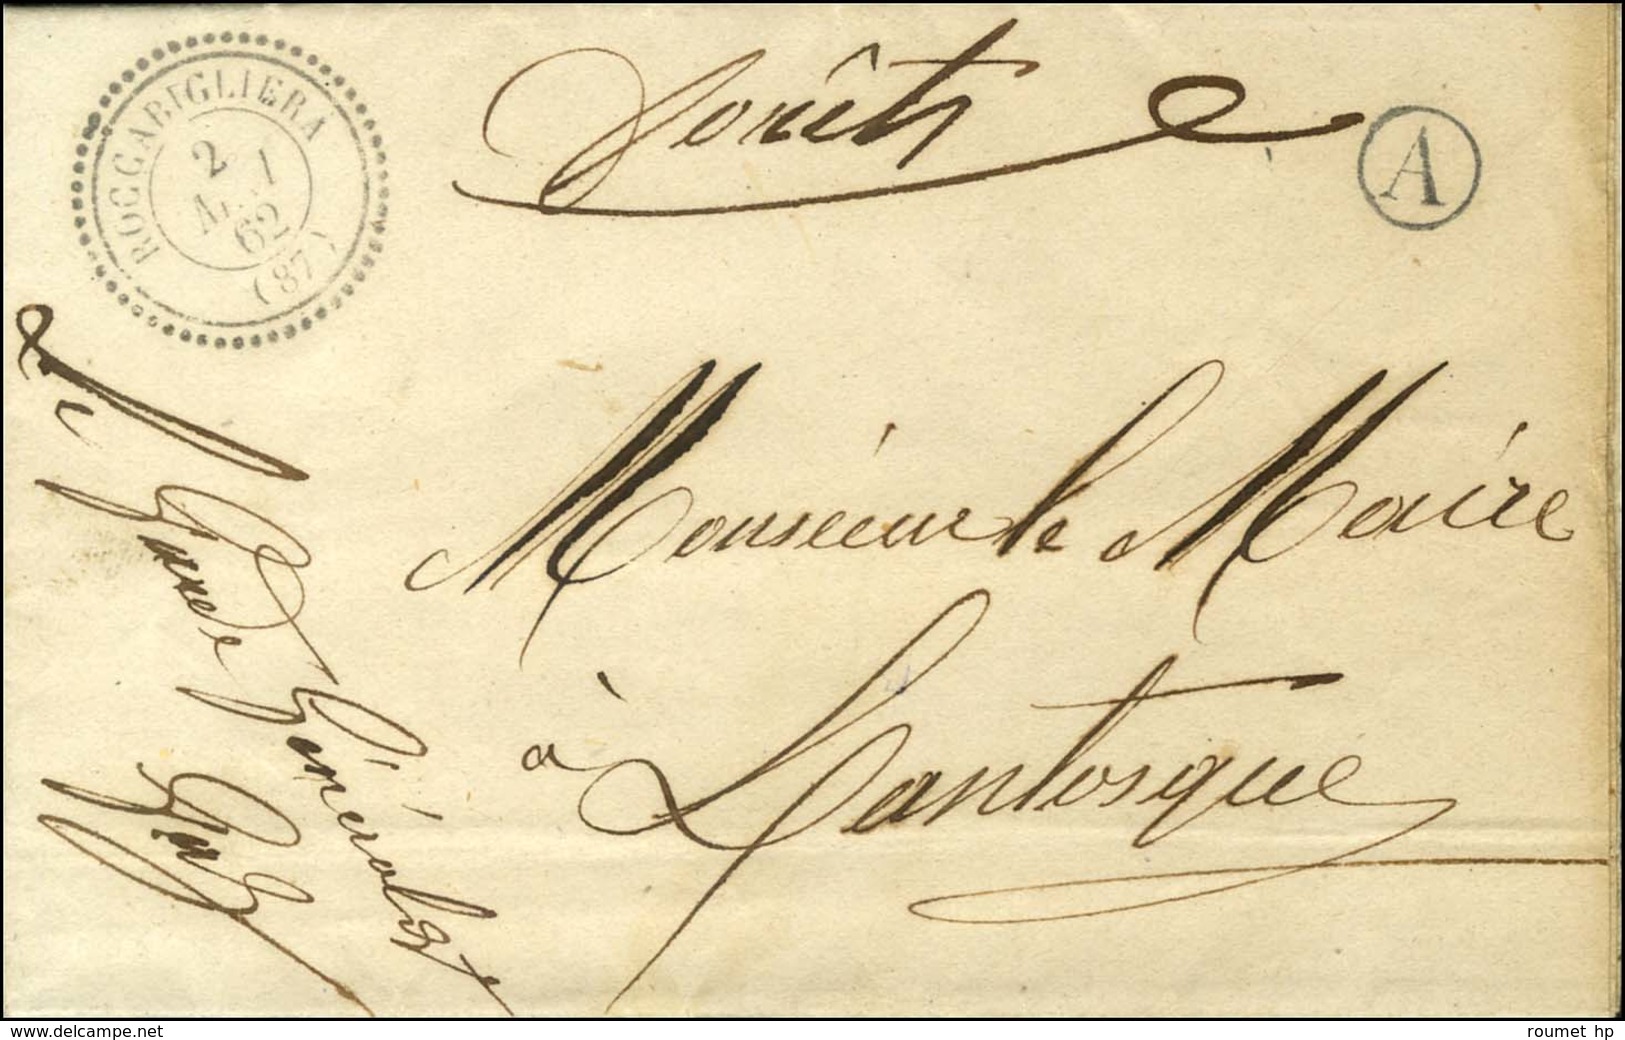 ROCCABIGLIERA
21
62
(87)
Forêts
A
Monsieur le Maire
à Lantosque
Le
Garde Général
www.delcampe.net
roumet hp